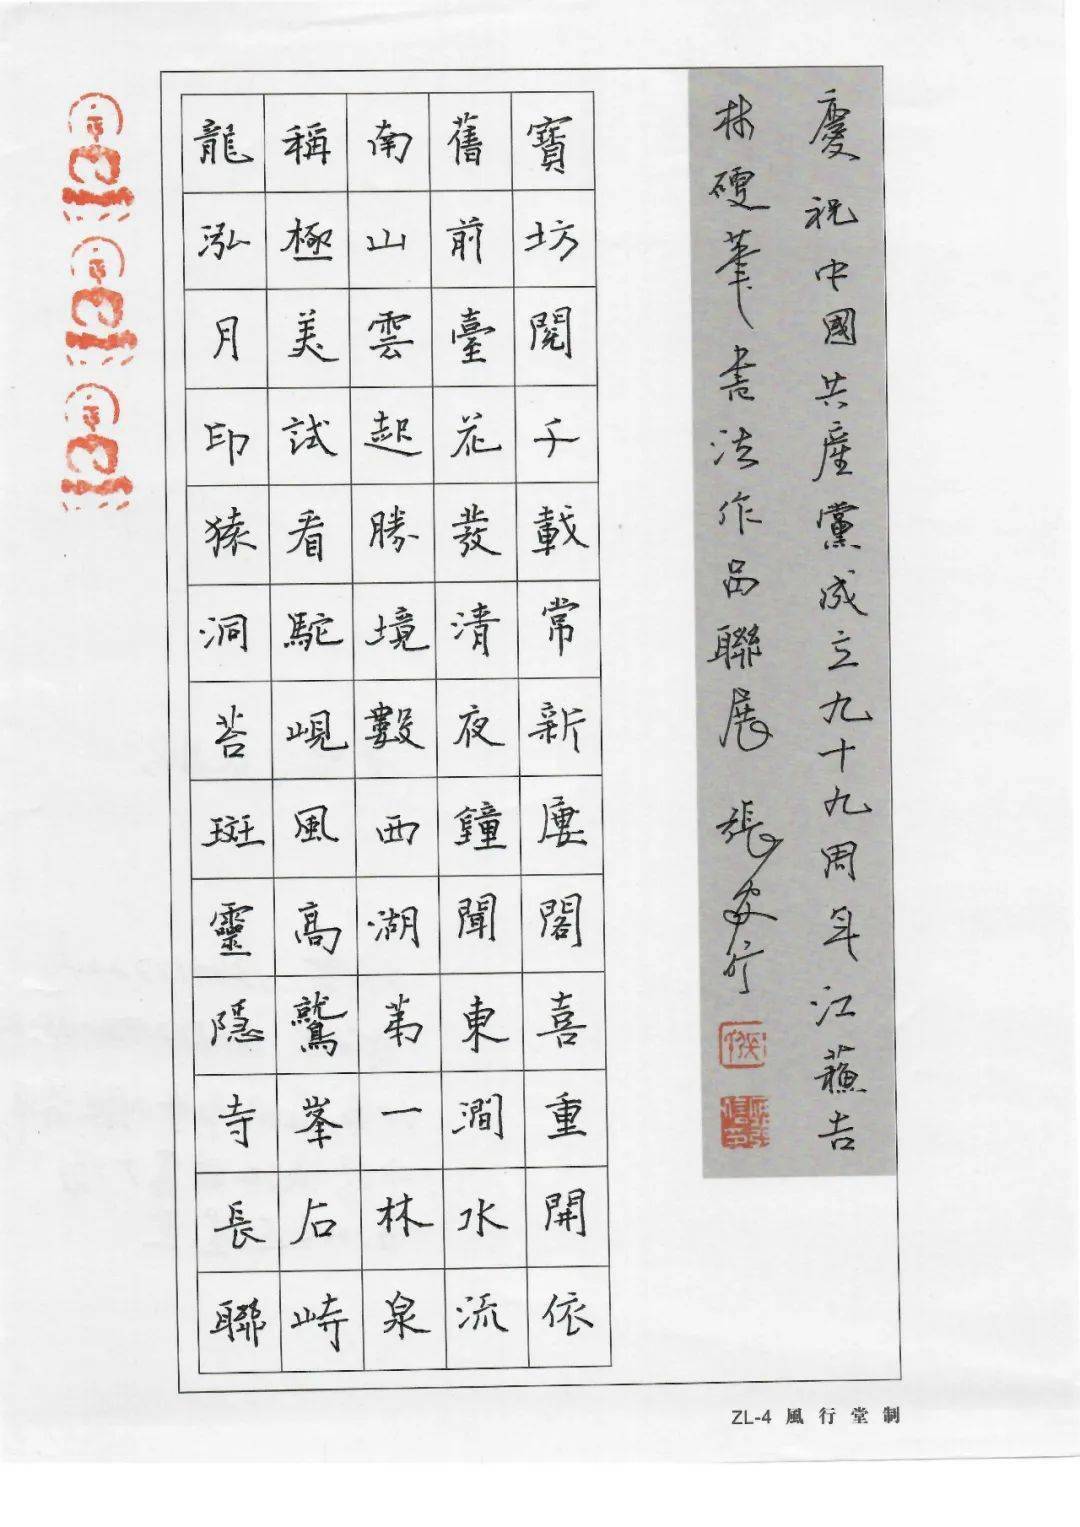 慶祝中國共產黨成立九十九周年江蘇吉
林硬筆書法作品聯展 張
寶坊閱千載常新廔閣喜重開依
舊前臺花發清夜鐘聞東澗水流
南山雲起勝境數西湖苐一林泉
稱極美試看駝峴風高鷲峯石峙
龍泓月印猿洞苔斑靈隱寺長聯
ZL-4 風行堂制